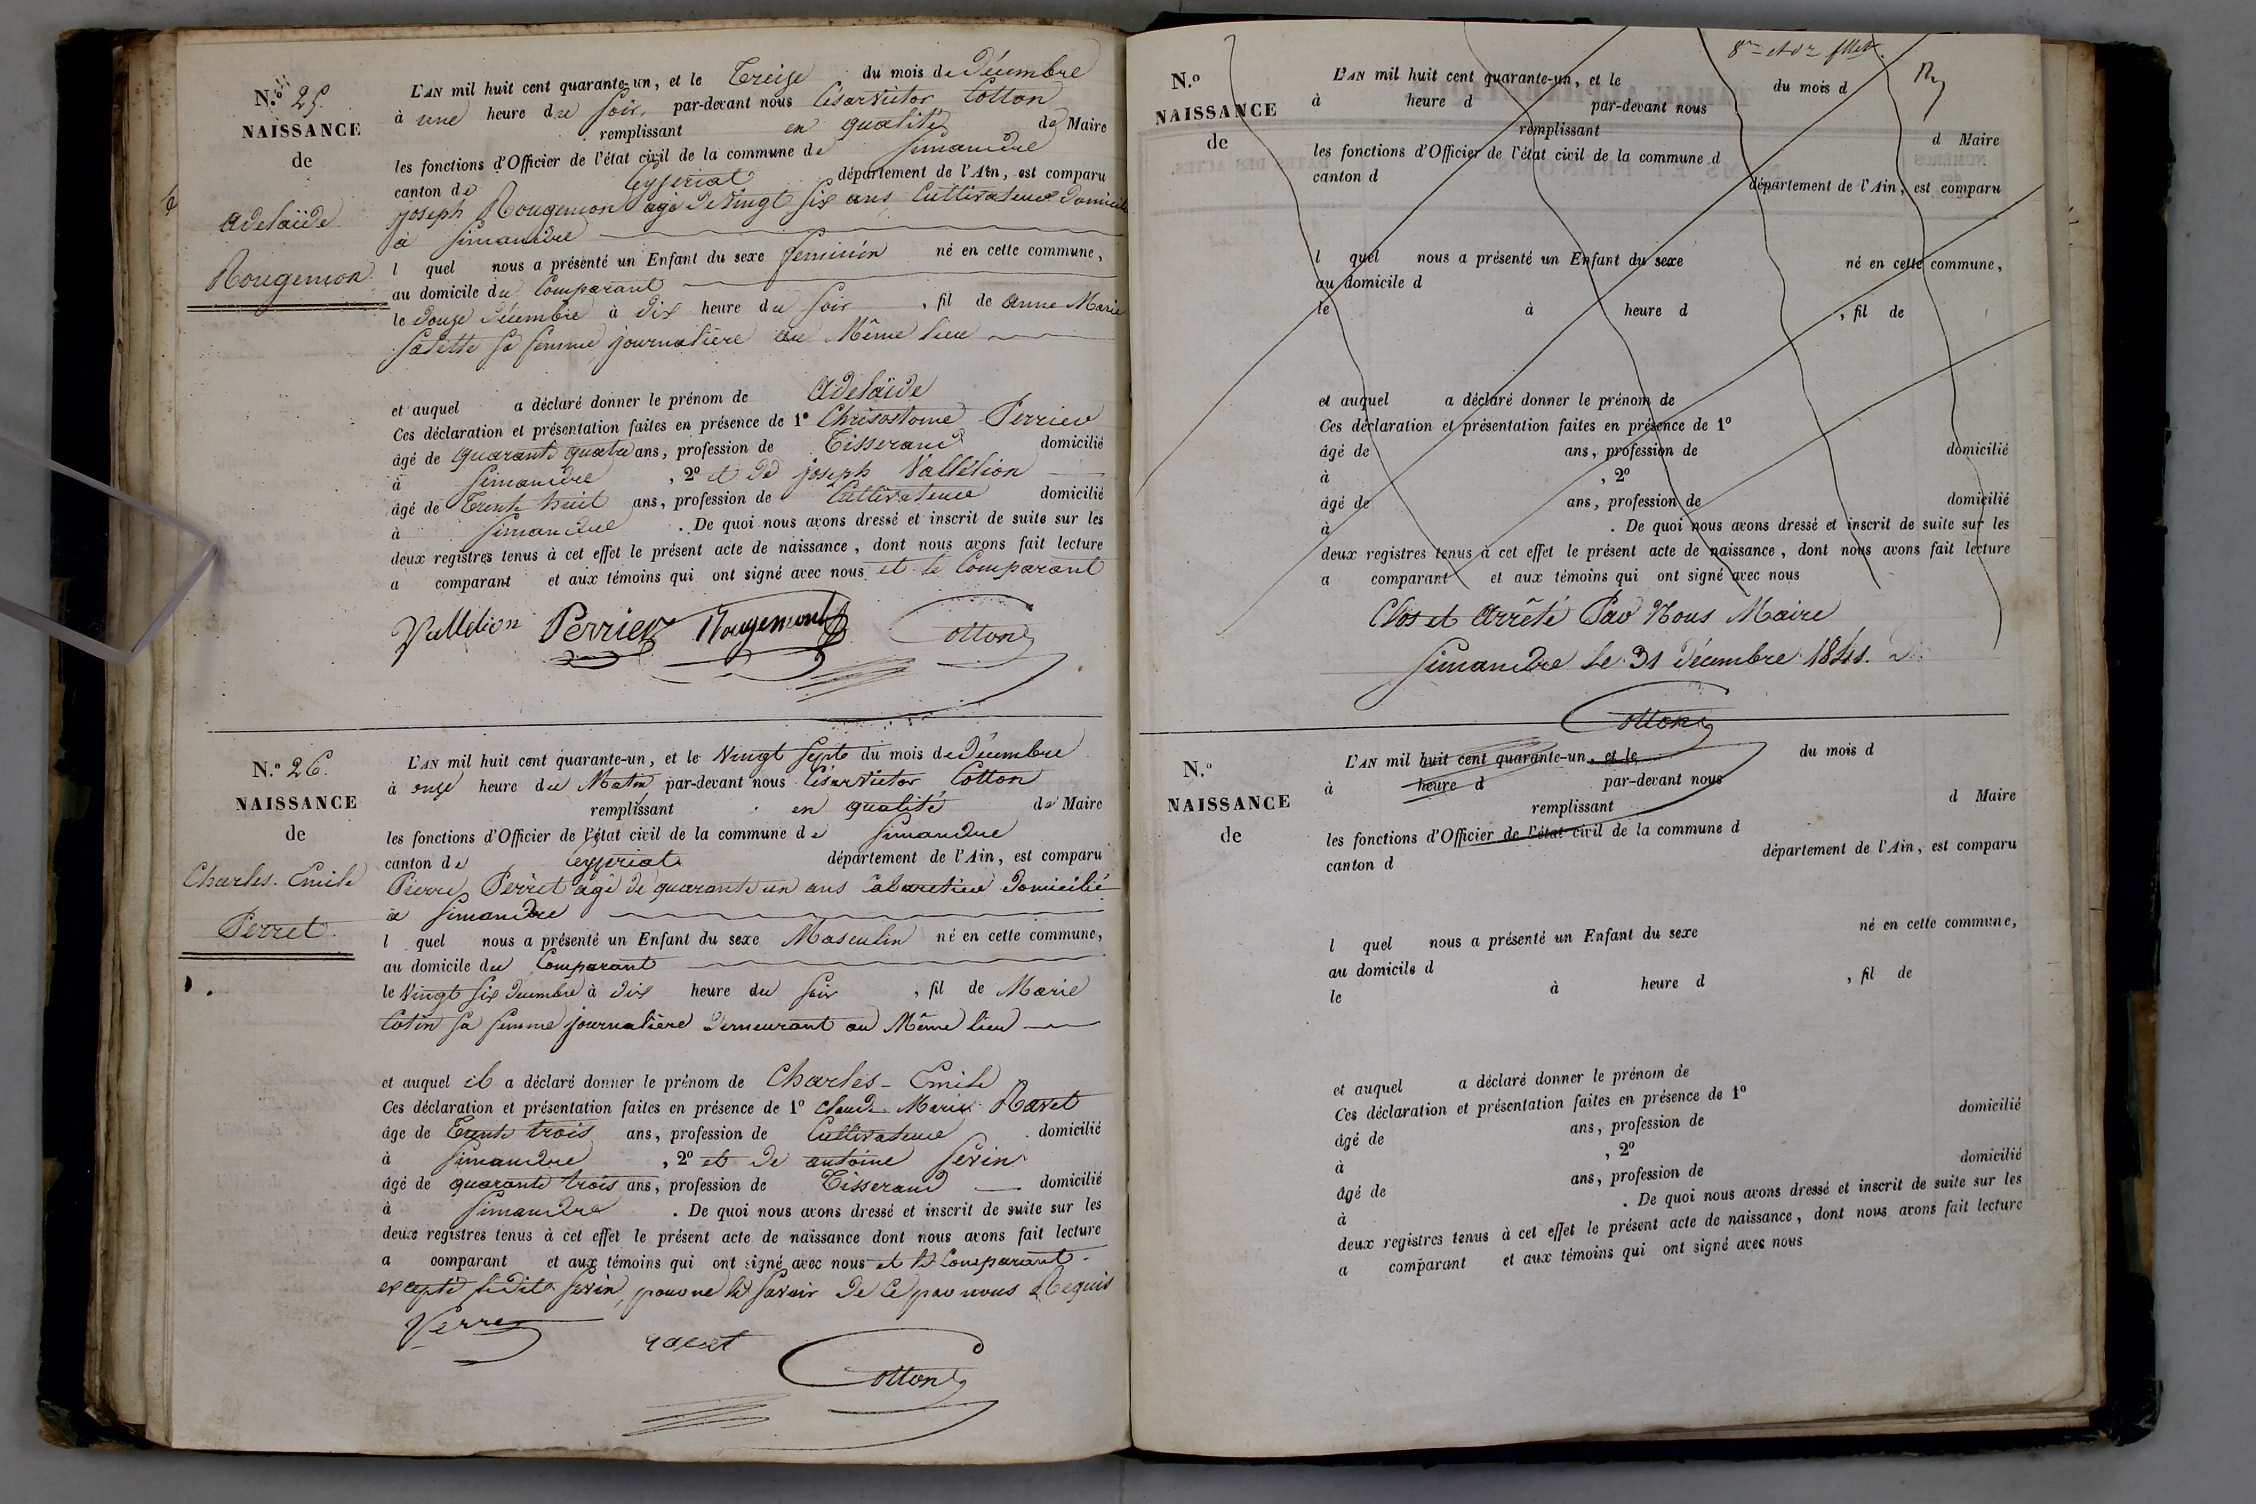 N.º 25.
NAISSANCE
de
Adelaïde
Rougemon
L'AN mil huit cent quarante-un, et le Treize du mois de Décembre
à une heure du soir, par-devant nous César Victor Cotton
remplissant en qualité de Maire
les fonctions d'Officier de l'état civil de la commune de Simandre
canton de Ceyzeriat département de l'Ain, est comparu
joseph Rougemon agé de vingt six ans Cultivateur Domicilié
à Simandre
l quel nous a présenté un Enfant du sexe feminin né en cette commune,
au domicile du Comparant
le Douze Décembre à Dix heure du soir , fil de Anne Marie
Sa femme journalière au Même lieu
et auquel a déclaré donner le prénom de Adelaïde
Ces déclaration et présentation faites en présence de 1º Chrisostome Perrier
âgé de quarante quatre ans, profession de Tisserand domicilié
à Simandre , 2º et de joseph Vallélion
âgé de Trente huit ans, profession de Cultivateur domicilié
à Simandre . De quoi nous avons dressé et inscrit de suite sur les
deux registres tenus à cet effet le présent acte de naissance, dont nous avons fait lecture
a comparant et aux témoins qui ont signé avec nous et le Comparant
Vallélion Perrier Rougemont Cotton
N.º 26.
NAISSANCE
de
Charles-Emile
Perret
L'AN mil huit cent quarante-un, et le Vingt Sept du mois de Décembre
à onze heure du Matin par-devant nous César Victor Cotton
remplissant en qualité de Maire
les fonctions d'Officier de l'état civil de la commune de Simandre
canton de Ceyzeriat département de l'Ain, est comparu
Pierre Perret agé de quarante un ans Cabaretier Domicilié
à Simandre
l quel nous a présenté un Enfant du sexe Masculin né en cette commune,
au domicile du Comparant
le Vingt Six Décembre à Dix heure du soir , fil de Marie
Cotin sa femme journalière Demeurant au Même lieu
et auquel il a déclaré donner le prénom de Charles-Emile
Ces déclaration et présentation faites en présence de 1º Claude Marie Ravet
âge de Trente trois ans, profession de Cultivateur domicilié
à Simandre , 2º et de antoine Sevin
âgé de quarante trois ans, profession de Tisserand domicilié
à Simandre . De quoi nous avons dressé et inscrit de suite sur les
deux registres tenus à cet effet le présent acte de naissance dont nous avons fait lecture
a comparant et aux témoins qui ont signé avec nous et le Comparant
excepté le dit Sevin, pour ne le savoir De Ce par nous Requis
Perret ravet Cotton
N.º
NAISSANCE
de
L'AN mil huit cent quarante-un, et le du mois d
à heure d par-devant nous
remplissant d Maire
les fonctions d'Officier de l'état civil de la commune d
canton d département de l'Ain, est comparu
l quel nous a présenté un Enfant du sexe né en cette commune,
au domicile d
le à heure d , fil de
et auquel a déclaré donner le prénom de
Ces déclaration et présentation faites en présence de 1º
âgé de ans, profession de domicilié
à , 2º
âgé de ans, profession de domicilié
à . De quoi nous avons dressé et inscrit de suite sur les
deux registres tenus à cet effet le présent acte de naissance, dont nous avons fait lecture
a comparant et aux témoins qui ont signé avec nous
Clos et Arrêté Par Nous Maire
Simandre le 31 Décembre 1841.
Cotton
N.º
NAISSANCE
de
L'AN mil huit cent quarante-un, et le du mois d
à heure d par-devant nous
remplissant d Maire
les fonctions d'Officier de l'état civil de la commune d
canton d département de l'Ain, est comparu
l quel nous a présenté un Enfant du sexe né en cette commune,
au domicile d
le à heure d , fil de
et auquel a déclaré donner le prénom de
Ces déclaration et présentation faites en présence de 1º
âgé de ans, profession de domicilié
à , 2º
âgé de ans, profession de domicilié
à . De quoi nous avons dressé et inscrit de suite sur les
deux registres tenus à cet effet le présent acte de naissance, dont nous avons fait lecture
a comparant et aux témoins qui ont signé avec nous